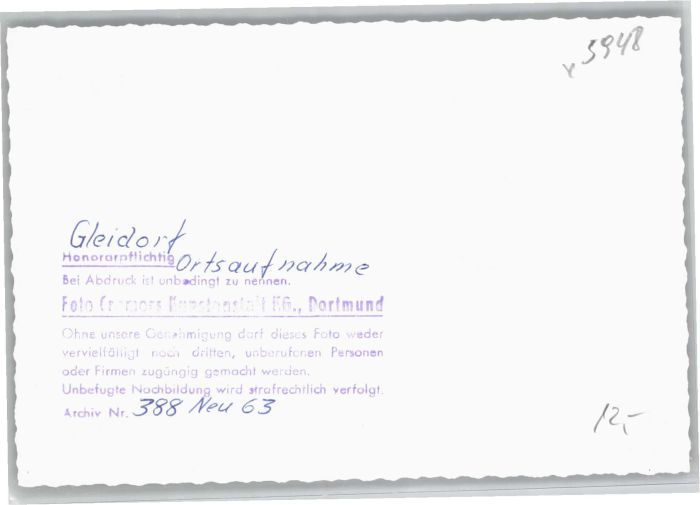 x 5948
Gleidorf
Honorarpflichtig Ortsaufnahme
Bei Abdruck ist unbedingt zu nennen.
Foto Cramers Kunstanstalt KG., Dortmund
Ohne unsere Genehmigung darf dieses Foto weder
vervielfältigt noch dritten, unberufenen Personen
oder Firmen zugängig gemacht werden.
Unbefugte Nachbildung wird strafrechtlich verfolgt.
Archiv Nr. 388 Neu 63
12,-